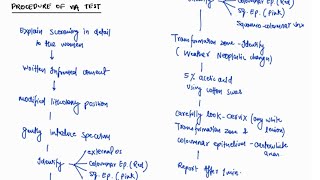 PROCEDURE OF VIA TEST
Explain screening in detail
to the women
written informed consent
modified lithotomy position
gently introduce speculum
Identify
external os
columnar Ep. (Red)
Sq. Ep. (Pink)
columnar Ep. (Red)
Sq. Ep. (Pink)
Squamo-columnar
Transformation zone - Identify
( Weather Neoplastic changes)
5% acetic acid
using cotton swab
Carefully look - cervix (any white
Transformation zone &
columnar epithelium -
Report after 1 min.